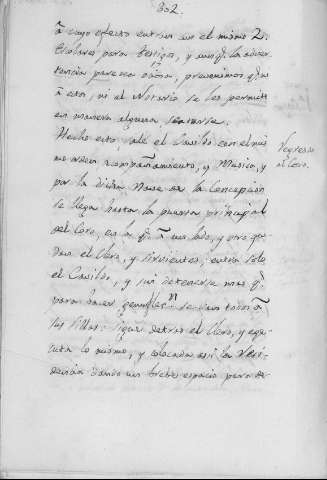 302.
â cuyo efecto entran con el mismo 2.
Escolares para testigos, y aunq.e la adver-
tencia parezca ôciosa, prevenimos q.e ni
â esto, ni al Notario se les permite
en manera alguna sentarse.
Hecho esto sale el Cavildo con el mis
mo orden âcompañamiento, y Musica, y
por la dicha Nave de la Concepcion
se llega hasta la puerta principal
del Coro, en la q.e â un lado, y otro que
dan el Clero, y sirvientes, entra solo
el Cavildo, y sin detenerse mas q.e
para hacer genuflex.n se van todos â
sus Sillas: sigue detras el Clero, y ege-
cuta lo mismo, y colocada asi la Resi-
dencia dando un breve espacio para de
Regreso
al Coro.